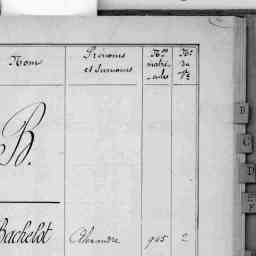 Nom
Prénoms
et Surnoms
Nos
matri-
cules
No
du
Vt
B.
Bachelot Alexandre 965 2
B
C
D
E
F